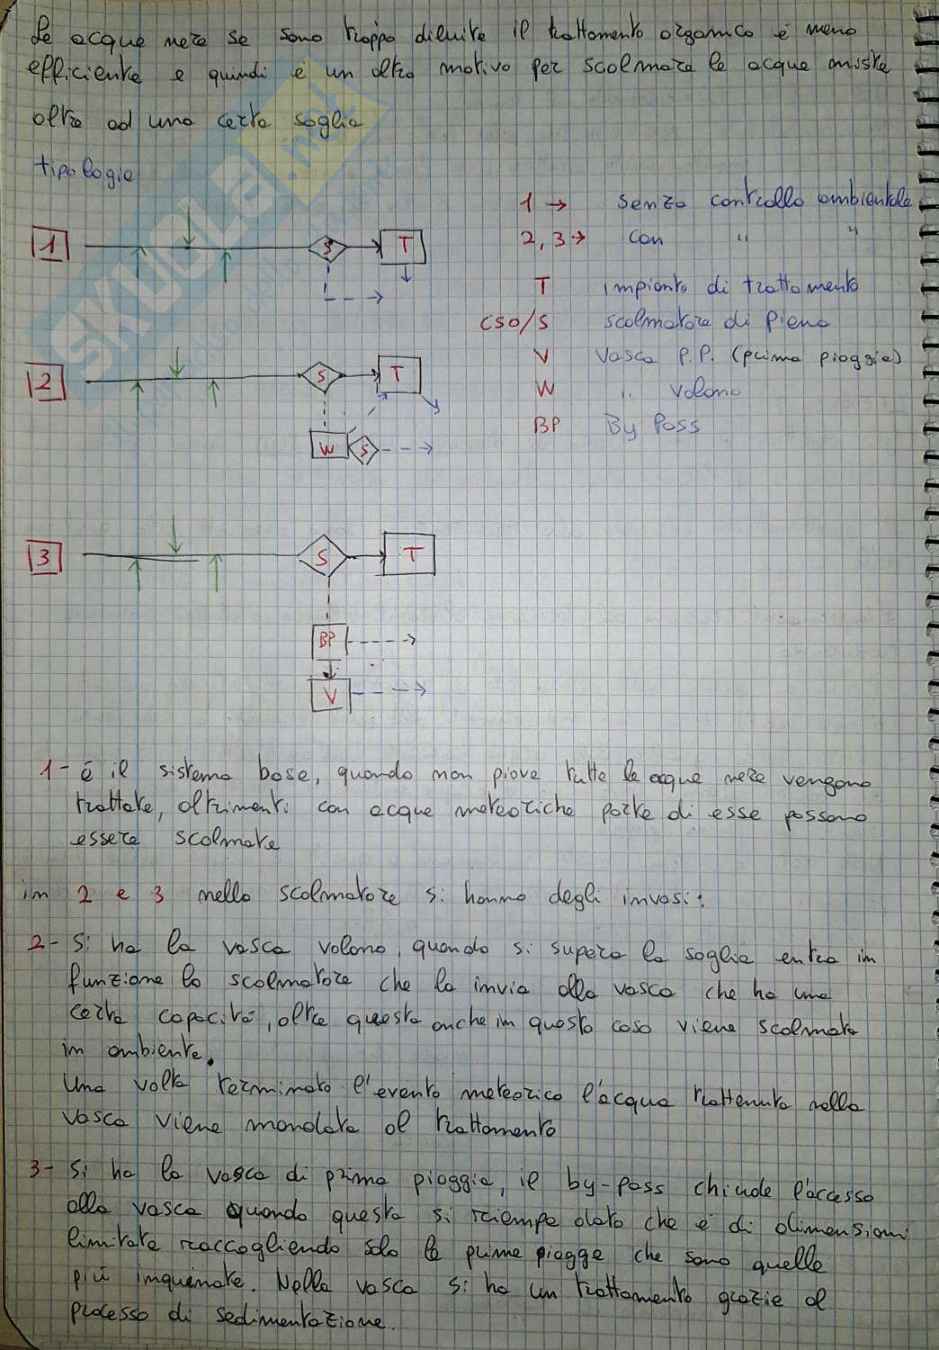 Le acque nere se sono troppo diluite il trattamento organico è meno
efficiente e quindi è un altro motivo per scolmare le acque miste
oltre ad una certa soglia
SKUOLA.net
tipologie
1 → senza controllo ambientale
2, 3 → con " "
T impianto di trattamento
CSO/S scolmatore di piena
V Vasca P.P. (prima pioggia)
W " volano
BP By Pass
1 S T
2 S T
W S
3 S T
BP
V
1- è il sistema base, quando non piove tutte le acque nere vengono
trattate, altrimenti con acque meteoriche parte di esse possono
essere scolmate
in 2 e 3 nello scolmatore si hanno degli invasi:
2- Si ha la vasca volano, quando si supera la soglia entra in
funzione lo scolmatore che la invia alla vasca che ha una
certa capacità, oltre questa anche in questo caso viene scolmata
in ambiente.
Una volta terminato l'evento meteorico l'acqua trattenuta nella
vasca viene mandata al trattamento
3- Si ha la vasca di prima pioggia, il by-pass chiude l'accesso
alla vasca quando questa si riempe dato che è di dimensioni
limitate raccogliendo solo le prime piogge che sono quelle
più inquinate. Nella vasca si ha un trattamento grazie al
processo di sedimentazione.